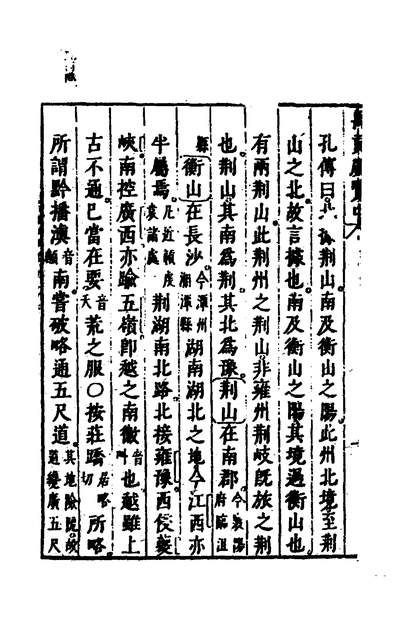 孔傳曰北據荆山南及衡山之陽此州北境至荆
山之北故言據也南及衡山之陽其境過衡山也
有兩荆山此荆州之荆山非雍州荆岐旣旅之荆
也荆山其南爲荆其北爲豫荆山在南郡今襄陽府臨沮
縣衡山在長沙今潭州湘潭縣湖南湖北之地今江西亦
半屬焉凡近袁諸處荆湖南北路北接雍豫西侵夔
峽南控廣西亦踰五嶺卽越之南徼音叫也越雖上
古不通已當在要音夭荒之服○按莊蹻居略切所略
所謂黔播滇音顛南嘗破略通五尺道其地險阨故道纔廣五尺